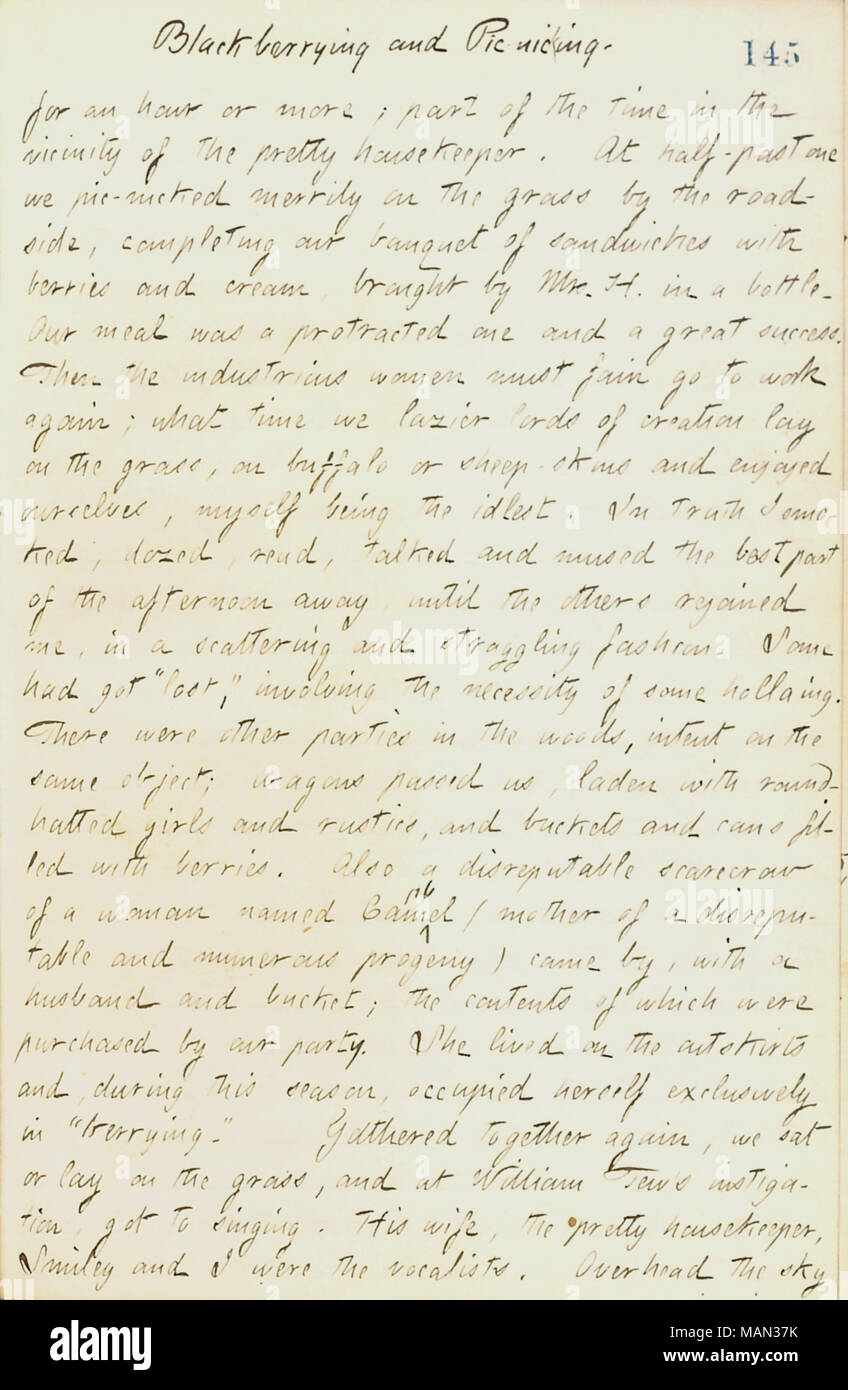 Blackberrying and Pic nicking.
145
for an hour or more; part of the time in the
vicinity of the pretty housekeeper. At half-past one
we pic-nicked merrily on the grass by the road-
side, completing our banquet of sandwiches with
berries and cream, brought by Mrs. H. in a bottle.
Our meal was a protracted one and a great success.
Then the industrious women must fain go to work
again; what time we lazier lords of creation lay
on the grass, on buffalo or sheep-skins and enjoyed
ourselves, myself being the idlest. In truth I smo-
ked, dozed, read, talked and mused the best part
of the afternoon away, until the others rejoined
me, in a scattering and straggling fashion. Some
had got "lost," involving the necessity of some hollaing.
There were other parties in the woods, intent on the
same object; wagons passed us, laden with round-
hatted girls and rustics, and buckets and cans fil-
led with berries. Also a disreputable scarecrow
of a woman named Campbel (mother of a disrepu-
table and numerous progeny) came by, with a
husband and bucket; the contents of which were
purchased by our party. She lived on the outskirts
and, during this season, occupied herself exclusively
in "berrying." Gathered together again, we sat
or lay on the grass, and at William Tew's instiga-
tion, got to singing. His wife, the pretty housekeeper,
Smiley and I were the vocalists. Overhead the sky
alamy
Image ID: MAN37K
www.alamy.com